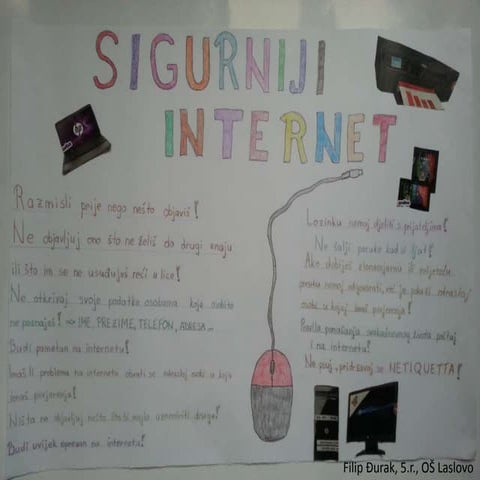 SIGURNIJI
INTERNET
Razmisli prije nego nešto objaviš!
Ne objavljuj ono što ne želiš da drugi znaju
ili što im se ne usuđuješ reći u lice!
Ne otkrivaj svoje podatke osobama koje osobno
ne poznaješ! => IME, PREZIME, TELEFON, ADRESA...
Budi pametan na internetu!
Imaš li problema na internetu obrati se odrasloj osobi u koju
imaš povjerenja!
Ništa ne objavljuj nešto što bi moglo uznemiriti druge!
Budi uvijek oprezan na internetu!
Lozinku nemoj dijeliti s prijateljima!
Ne šalji poruke kad si ljut!
Ako dobiješ zlonamjernu ili prijeteću
poruku nemoj odgovarati, već je pokaži odrasloj
osobi u kojoj imaš povjerenja!
Pravila ponašanja svakodnevnog života poštuj
i na internetu!
Ne psuj, pridržavaj se NETIQUETTA!
Filip Đurak, 5.r., OŠ Laslovo